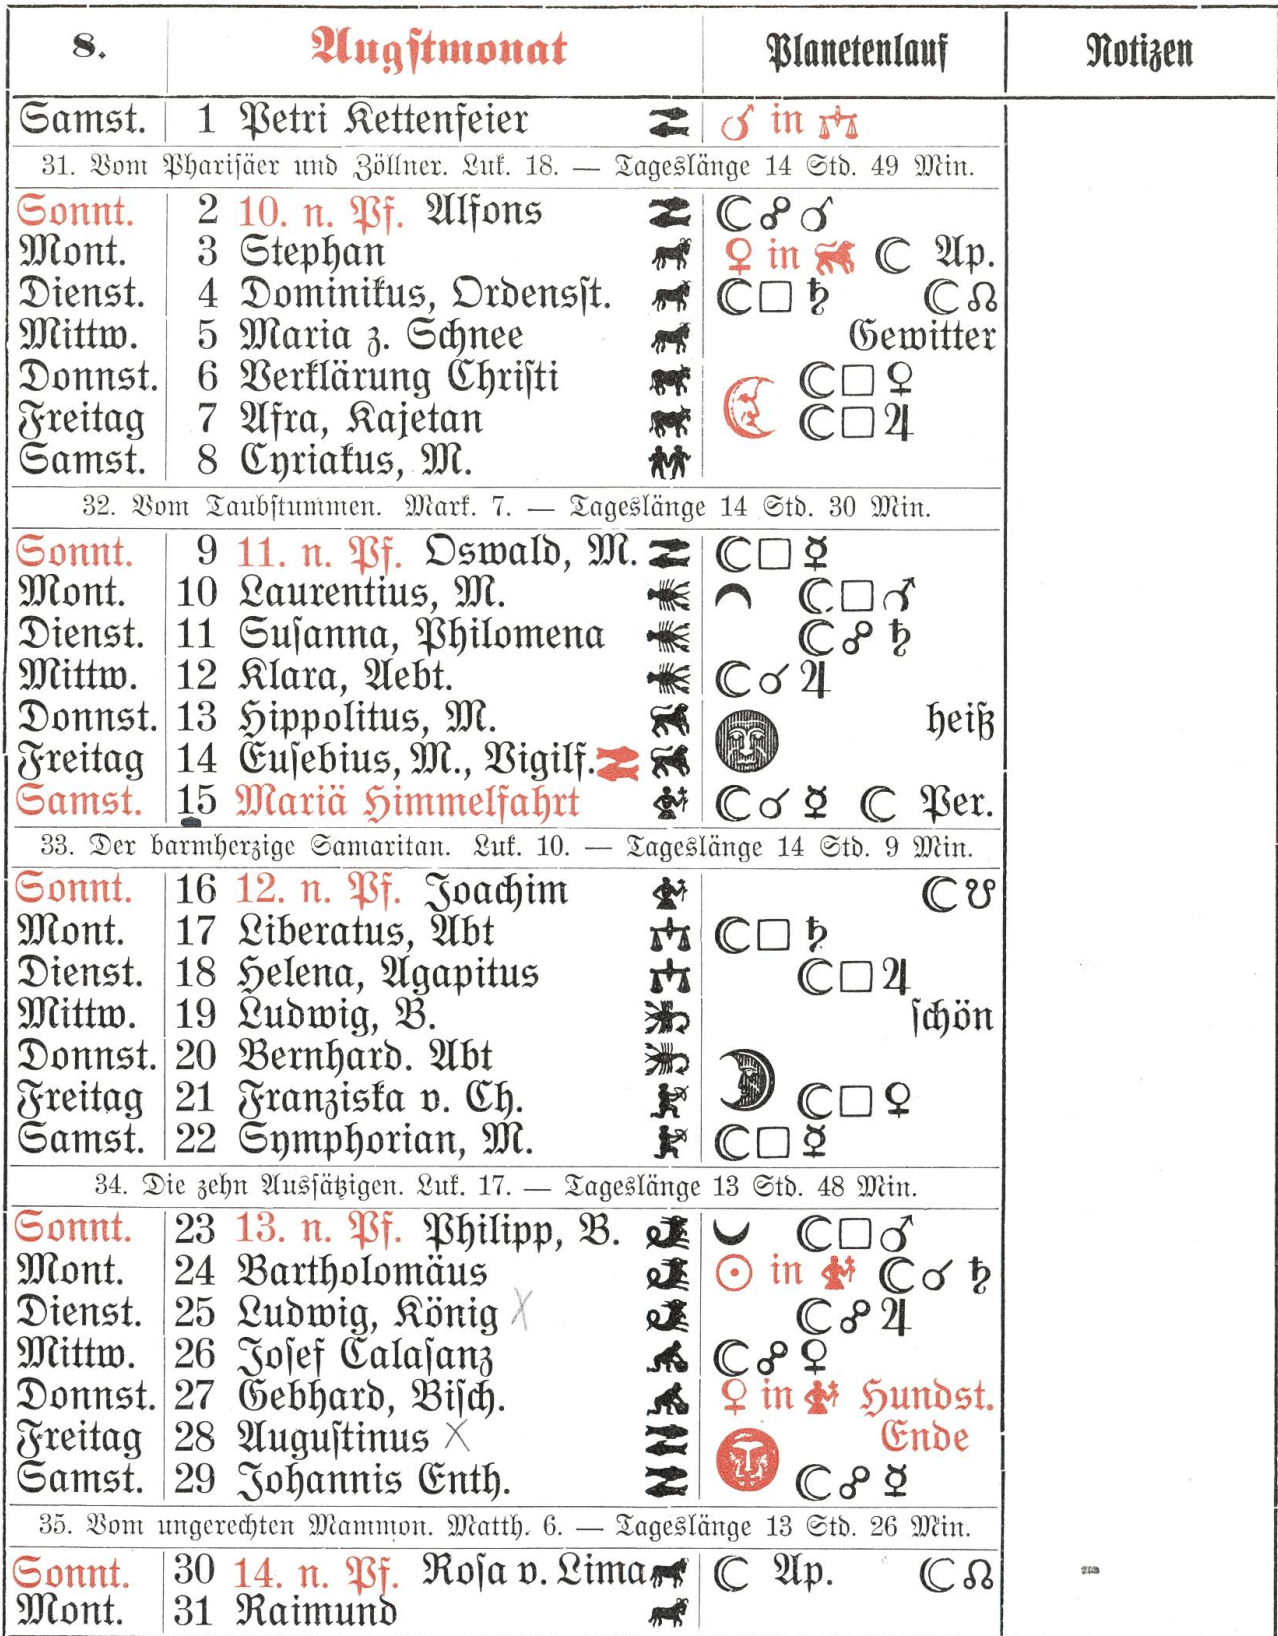 8. Augstmonat Planetenlauf Notizen
Samst. 1 Petri Kettenfeier ♓ ♂ in ♎
31. Vom Pharisäer und Zöllner. Luk. 18. — Tageslänge 14 Std. 49 Min.
Sonnt. 2 10. n. Pf. Alfons ♓ ☾☍♂
Mont. 3 Stephan ♈ ♀ in ♌ ☾ Ap.
Dienst. 4 Dominikus, Ordensst. ♈ ☾□♄ ☾☊
Mittw. 5 Maria z. Schnee ♈ Gewitter
Donnst. 6 Verklärung Christi ♉ ☾□♀
Freitag 7 Afra, Kajetan ♉ ☾□♃
Samst. 8 Cyriakus, M. ♊
32. Vom Taubstummen. Mark. 7. — Tageslänge 14 Std. 30 Min.
Sonnt. 9 11. n. Pf. Oswald, M. ♓ ☾□☿
Mont. 10 Laurentius, M. ♋ ☾□♂
Dienst. 11 Susanna, Philomena ♋ ☾☍♄
Mittw. 12 Klara, Aebt. ♋ ☾☌♃
Donnst. 13 Hippolitus, M. ♌ heiß
Freitag 14 Eusebius, M., Vigilf. ♓ ♌
Samst. 15 Mariä Himmelfahrt ♍ ☾☌☿ ☾ Per.
33. Der barmherzige Samaritan. Luk. 10. — Tageslänge 14 Std. 9 Min.
Sonnt. 16 12. n. Pf. Joachim ♍ ☾☋
Mont. 17 Liberatus, Abt ♎ ☾□♄
Dienst. 18 Helena, Agapitus ♎ ☾□♃
Mittw. 19 Ludwig, B. ♏ schön
Donnst. 20 Bernhard. Abt ♏
Freitag 21 Franziska v. Ch. ♐ ☾□♀
Samst. 22 Symphorian, M. ♐ ☾□☿
34. Die zehn Aussätzigen. Luk. 17. — Tageslänge 13 Std. 48 Min.
Sonnt. 23 13. n. Pf. Philipp, B. ♑ ☾□♂
Mont. 24 Bartholomäus ♑ ☉ in ♍ ☾☌♄
Dienst. 25 Ludwig, König X ♑ ☾☍♃
Mittw. 26 Josef Calasanz ♒ ☾☍♀
Donnst. 27 Gebhard, Bisch. ♒ ♀ in ♍ Hundst.
Freitag 28 Augustinus X ♓ Ende
Samst. 29 Johannis Enth. ♓ ☾☍☿
35. Vom ungerechten Mammon. Matth. 6. — Tageslänge 13 Std. 26 Min.
Sonnt. 30 14. n. Pf. Rosa v. Lima ♈ ☾ Ap. ☾☊
Mont. 31 Raimund ♈